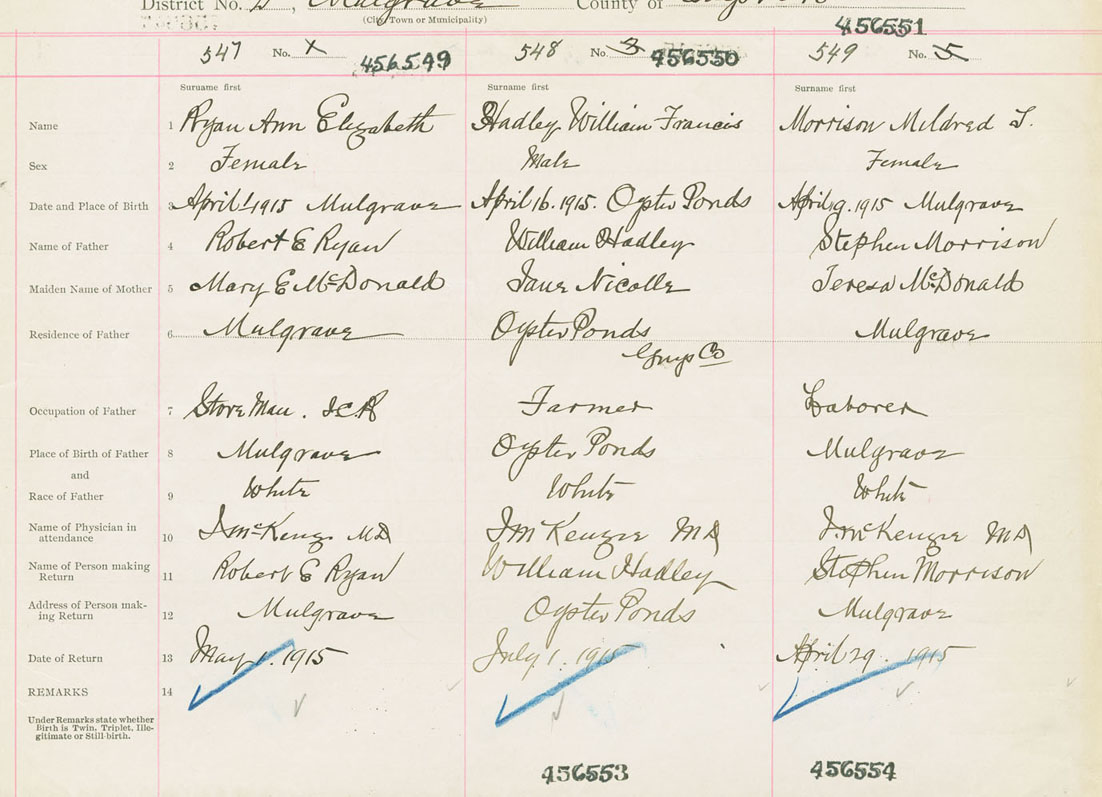 District No. 2, Mulgrave County of
(City Town or Municipality)
456551
547 No. X 456549 548 No. 3 456550 549 No. 5
Surname first Surname first Surname first
Name 1 Ryan Ann Elizabeth Hadley William Francis Morrison Mildred T.
Sex 2 Female Male Female
Date and Place of Birth 3 April 1915 Mulgrave April 16. 1915. Oyster Ponds April 9. 1915 Mulgrave
Name of Father 4 Robert E Ryan William Hadley Stephen Morrison
Maiden Name of Mother 5 Mary E McDonald Jane Nicolle Teresa McDonald
Residence of Father 6 Mulgrave Oyster Ponds Mulgrave
Guys Co
Occupation of Father 7 Store Man. I.C.R Farmer Laborer
Place of Birth of Father 8 Mulgrave Oyster Ponds Mulgrave
and
Race of Father 9 White White White
Name of Physician in
attendance 10 McKenzie MD McKenzie MD McKenzie MD
Name of Person making
Return 11 Robert E Ryan William Hadley Stephen Morrison
Address of Person mak-
ing Return 12 Mulgrave Oyster Ponds Mulgrave
Date of Return 13 May 1. 1915 July 1. 1915 April 29. 1915
REMARKS 14
Under Remarks state whether
Birth is Twin, Triplet, Ille-
gitimate or Still-birth.
456553 456554